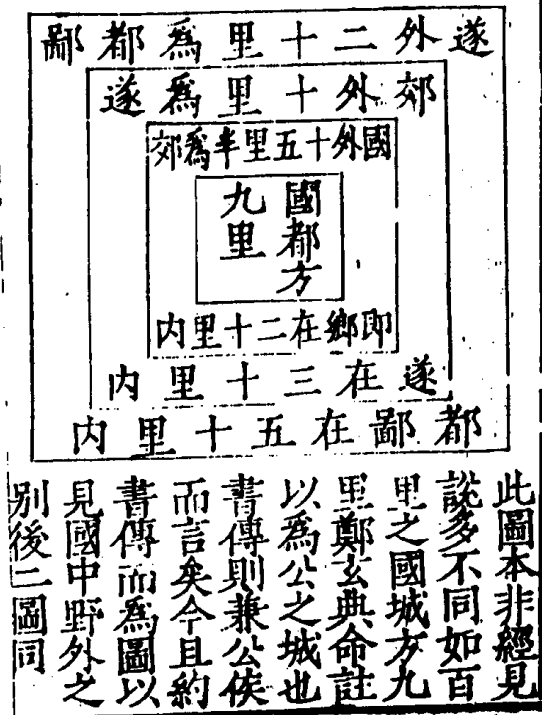 遂外二十里為都鄙
郊外十里為遂
國外十五里半為郊
國都方
九里
即鄉在二十里内
遂在三十里内
都鄙在五十里内
此圖本非經見
說多不同如百
里之國城方九
里鄭玄典命註
以為公之城也
書傳則兼公侯
而言矣今且約
書傳而為圖以
見國中野外之
别後二圖同